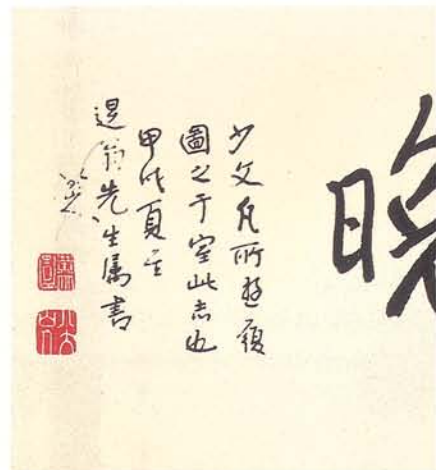 晚
少文凡所遊履
圖之于室此志也
甲戌夏
遐翁先生屬書